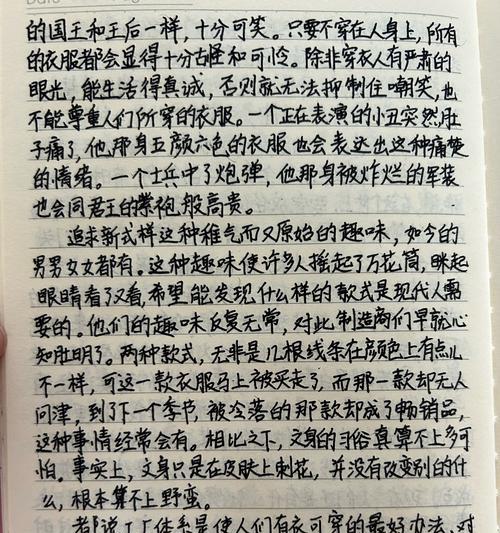 的国王和王后一样，十分可笑。只要不穿在人身上，所有
的衣服都会显得十分古怪和可怜。除非穿衣人有严肃的
眼光，能生活得真诚，否则就无法抑制住嘲笑，也
不能尊重人们所穿的衣服。一个正在表演的小丑突然肚
子痛了，他那身五颜六色的衣服也会表达出这种痛楚
的情绪。一个士兵中了炮弹，他那身被炸烂的军装
也会同君王的紫袍般高贵。
追求新式样这种稚气而又原始的趣味，如今的
男男女女都有。这种趣味使许多人摇起了万花筒，眯起
眼睛看了又看，希望能发现什么样的款式是现代人需
要的。他们的趣味反复无常，对此制造商们早就心
知肚明了。两种款式，无非是几根线条在颜色上有点儿
不一样，可这一款衣服马上被买走了，而那一款却无人
问津，到了下一个季节，被冷落的那款却成了畅销品，
这种事情经常会有。相比之下，文身的习俗真算不上多可
怕。事实上，文身只是在皮肤上刺花，并没有改变别的什
么，根本算不上野蛮。
都说工厂体系是使人们有衣可穿的最好办法，对